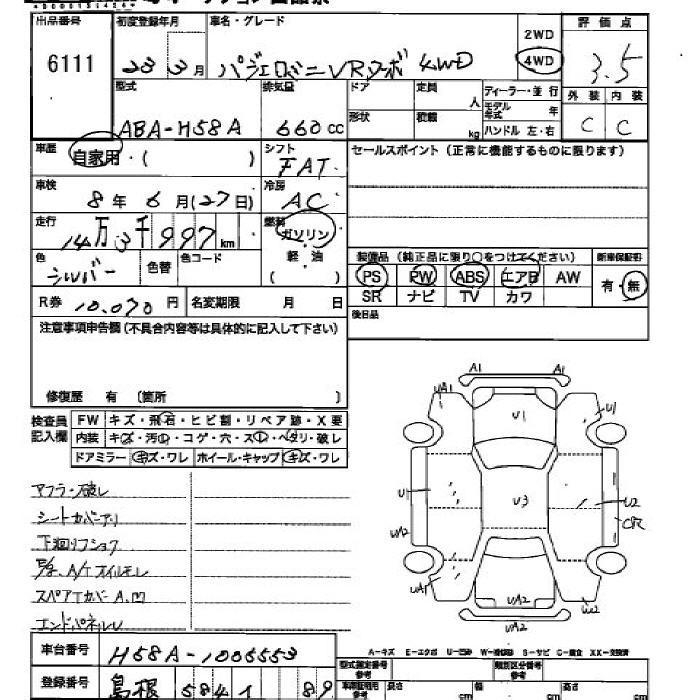 出品番号 初度登録年月 車名・グレード 評価点
6111 23 3月 パジェロミニ VRターボ 4WD 2WD 4WD 3.5
型式 排気量 ドア 定員 人 ディーラー・並行 外装 内装
ABA-H58A 660cc 形状 積載 kg モデル年式 年 ハンドル 左・右 C C
車歴 自家用・( ) シフト FAT セールスポイント(正常に機能するものに限ります)
車検 8年 6月(27日) 冷房 AC
走行 14万3千997km 燃料 ガソリン
色 シルバー 色替 色コード 軽・油 ( ) 装備品(純正品に限り○をつけてください) 新車保証書
PS PW ABS エアB AW 有・無
R券 10,070円 名変期限 月 日 SR ナビ TV カワ
注意事項申告欄(不具合内容等は具体的に記入して下さい) 後日品
修復歴 有 (箇所 )
検査員記入欄 FW キズ・飛石・ヒビ割・リペア跡・X要
内装 キズ・汚れ・コゲ・穴・スレ・ヘタリ・破レ
ドアミラー キズ・ワレ ホイール・キャップ キズ・ワレ
A1 A1
UA1 U1 U1
U1 U3 U2
UA2
UA1 UA2 UA2
マフラー破レ
シートカバーアリ
下廻リフショク
E/g、A/Tオイルモレ
スペアTカバーA、凹
エンドパネルU
車台番号 H58A-1005553
A-キズ E-エクボ U-凹み W-補修跡 S-サビ C-腐食 XX-交換済
登録番号 島根 584 1 89
型式指定番号 参考 類別区分番号 参考
車庫証明用 参考 長さ cm 幅 cm 高さ cm